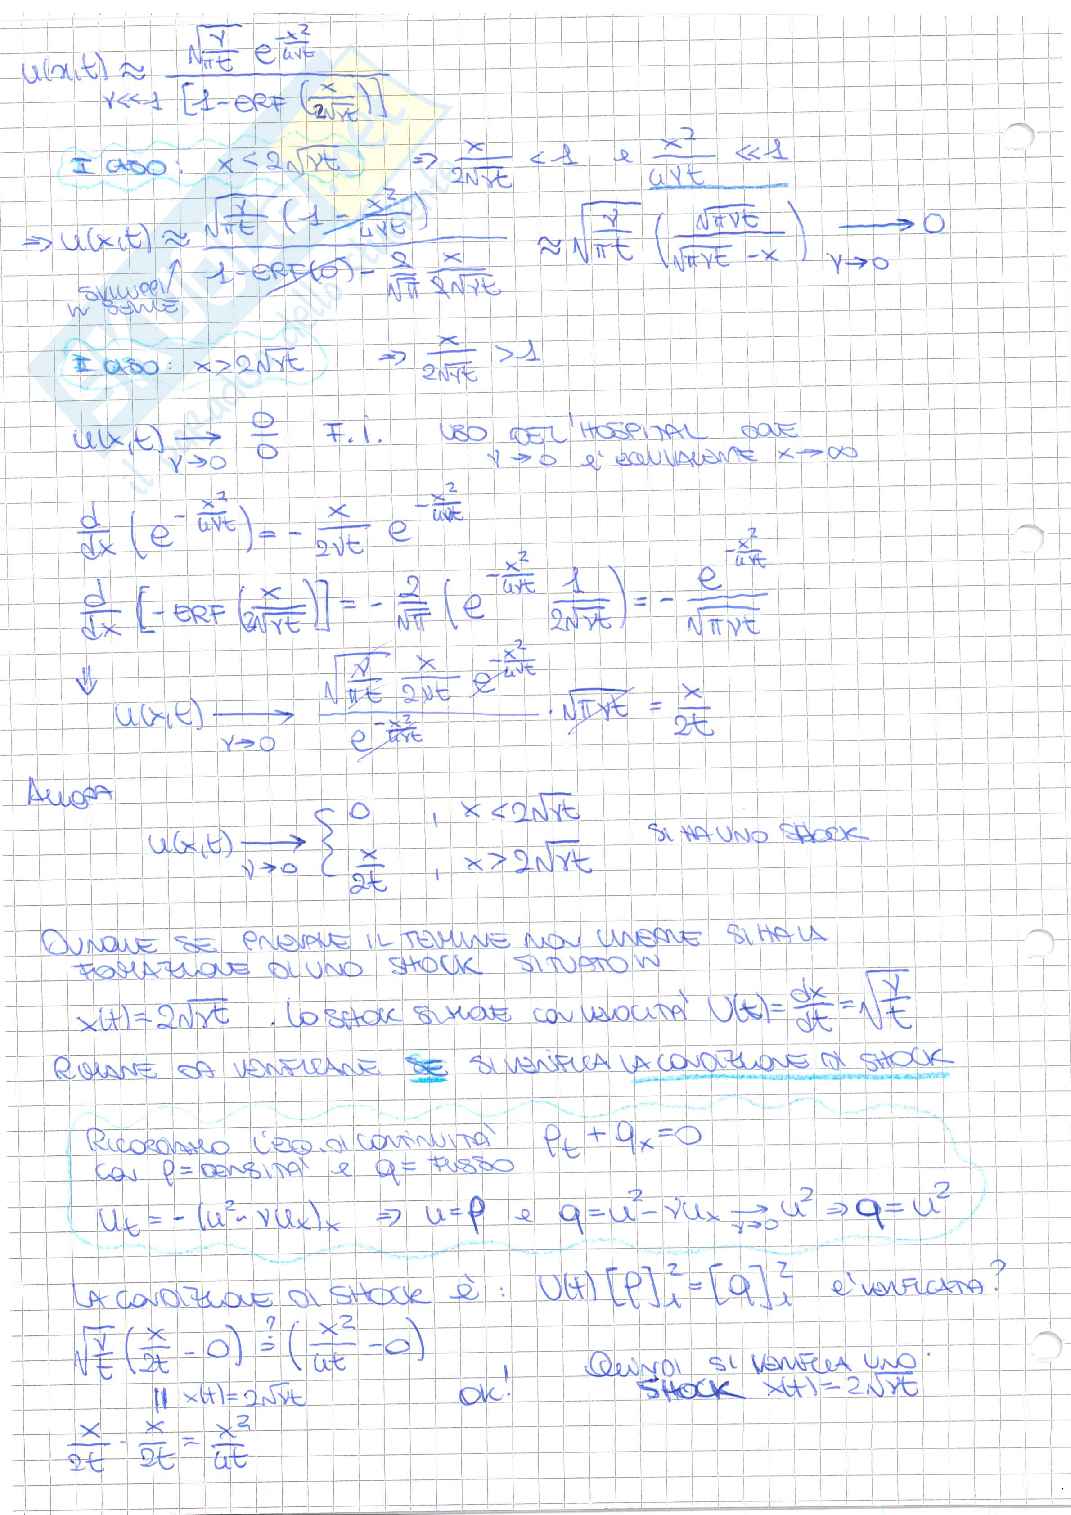 u(x,t) ≈ √(γ/πt) e^(-x²/4γt) / [1-ERF(x/2√γt)]
γ<<1
I CASO: x<2√γt ⇒ x/2√γt < 1 e x²/4γt << 1
⇒ u(x,t) ≈ √(γ/πt) (1 - x²/4γt) / (1-ERF(0) - 2/√π x/2√γt) ≈ √(γ/πt) (√πγt / (√πγt - x)) → 0
γ→0
SVILUPPI
IN SERIE
I CASO: x>2√γt ⇒ x/2√γt > 1
u(x,t) → 0/0 F.I. USO DEL'HOSPITAL DOVE
γ→0 γ→0 è EQUIVALENTE x→∞
d/dx (e^(-x²/4γt)) = - x/2γt e^(-x²/4γt)
d/dx [-ERF(x/2√γt)] = - 2/√π (e^(-x²/4γt) 1/2√γt) = - e^(-x²/4γt)/√πγt
⇓
u(x,t) → √(γ/πt) x/2γt e^(-x²/4γt) / e^(-x²/4γt) · √πγt = x/2t
γ→0
ALLORA
u(x,t) → { 0 , x<2√γt
γ→0 SI HA UNO SHOCK
x/2t , x>2√γt
DUNQUE SE PREVALE IL TERMINE NON LINEARE SI HA LA
FORMAZIONE DI UNO SHOCK SITUATO IN
x(t)=2√γt . LO SHOCK SI MUOVE CON VELOCITA' U(t)=dx/dt=√(γ/t)
RIMANE DA VERIFICARE SE SI VERIFICA LA CONDIZIONE DI SHOCK
RICORDANDO L'EQ. DI CONTINUITA' ρt + qx = 0
CON ρ=DENSITA' e q=FLUSSO
ut = -(u²-γux)x ⇒ u=ρ e q=u²-γux → u² ⇒ q=u²
γ→0
LA CONDIZIONE DI SHOCK È: U(t)[ρ]₁²=[q]₁² È VERIFICATA?
√(γ/t) (x/2t - 0) ?= (x²/4t - 0)
|| x(t)=2√γt OK! QUINDI SI VERIFICA UNO
SHOCK x(t)=2√γt
x/2t · x/2t = x²/4t